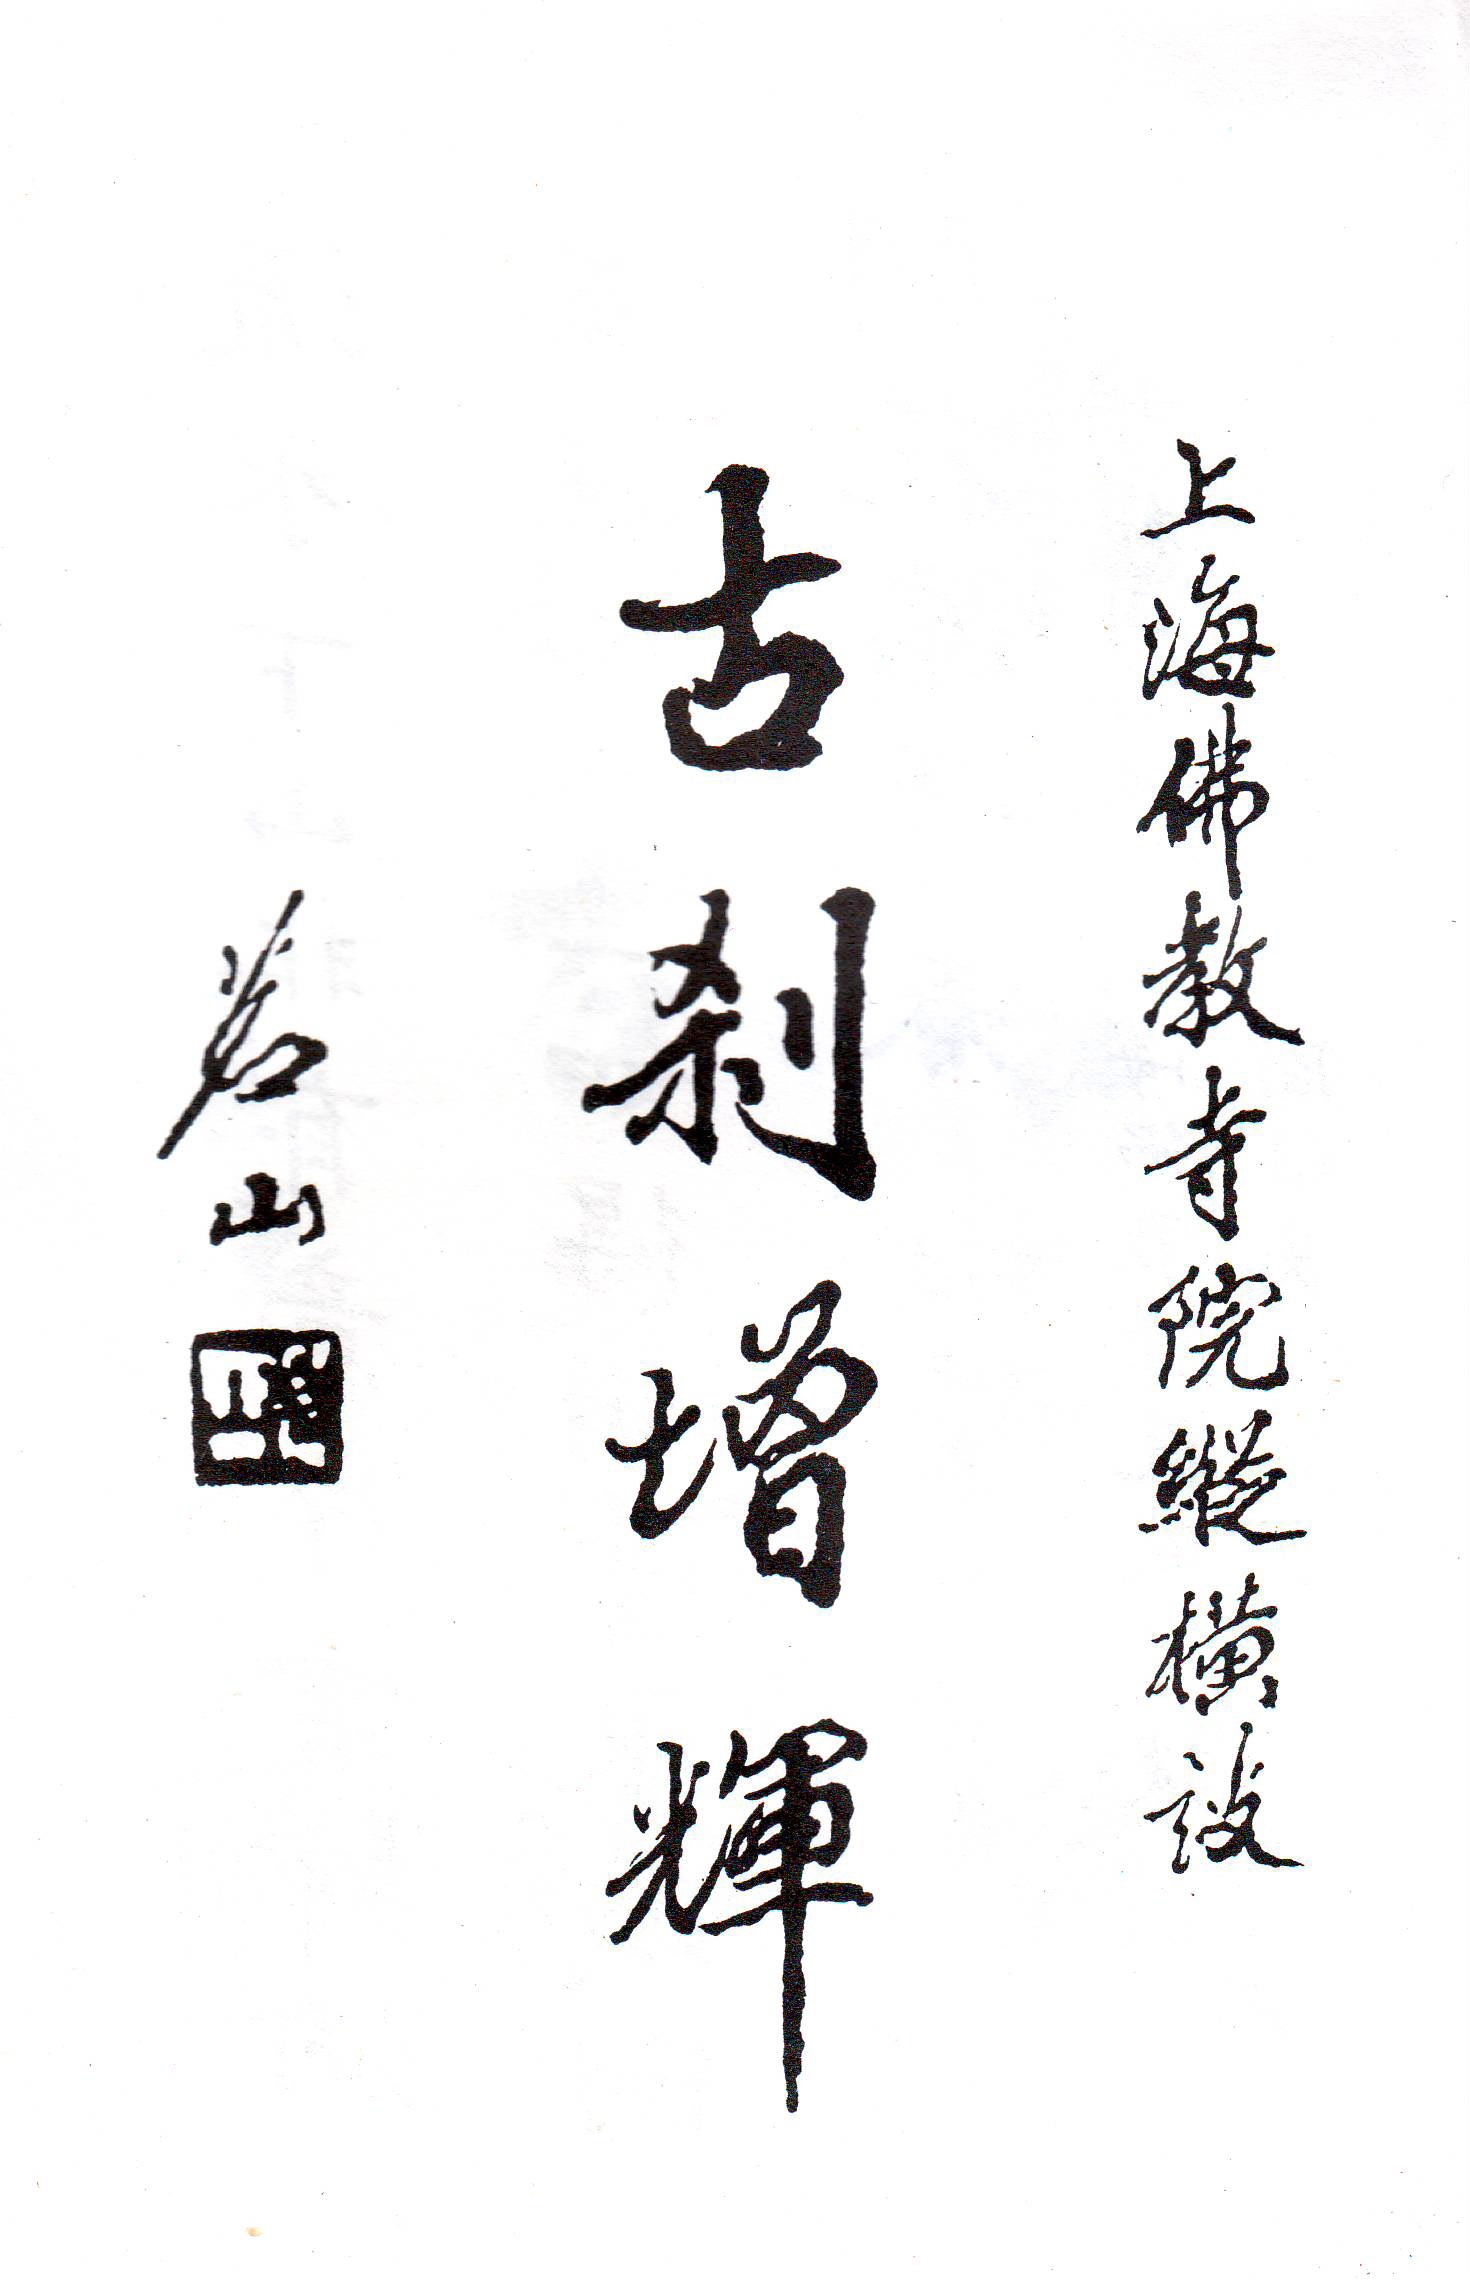 上海佛教寺院縱橫談
古刹增輝
茗山